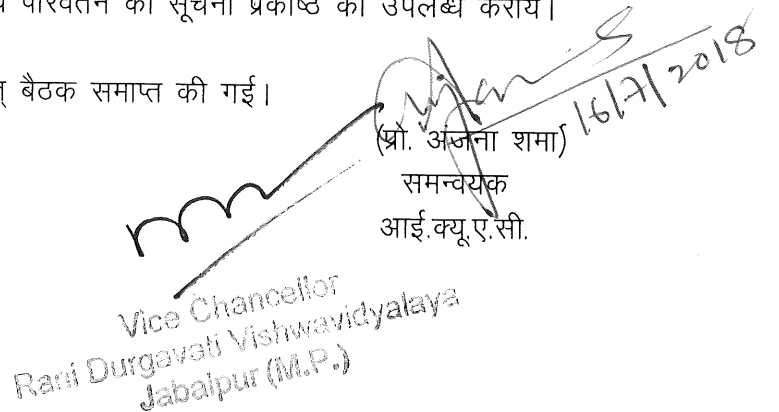 परिवर्तन की सूचना प्रकोष्ठ को उपलब्ध करायें।
बैठक समाप्त की गई।
16/7/2018
(प्रो. अंजना शर्मा)
समन्वयक
आई.क्यू.ए.सी.
Vice Chancellor
Rani Durgavati Vishwavidyalaya
Jabalpur (M.P.)